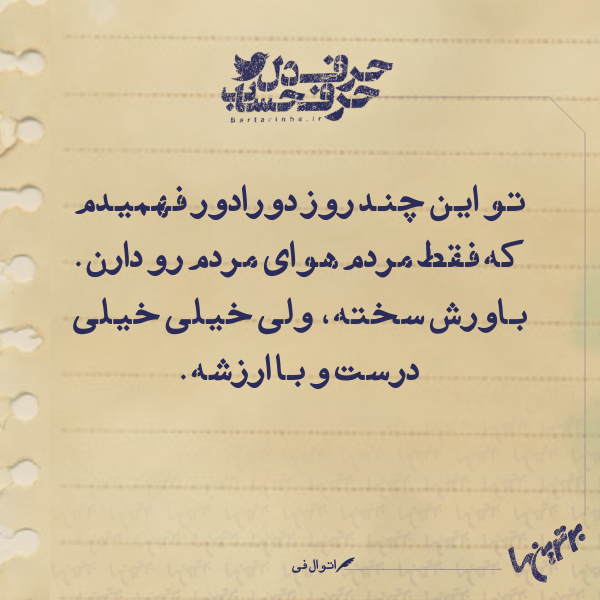 حرف دل
حرف حساب
Bartarinha.ir
تو این چند روز دورادور فهمیدم
که فقط مردم هوای مردم رو دارن.
باورش سخته، ولی خیلی خیلی
درست و باارزشه.
اتوال فی
برترین‌ها